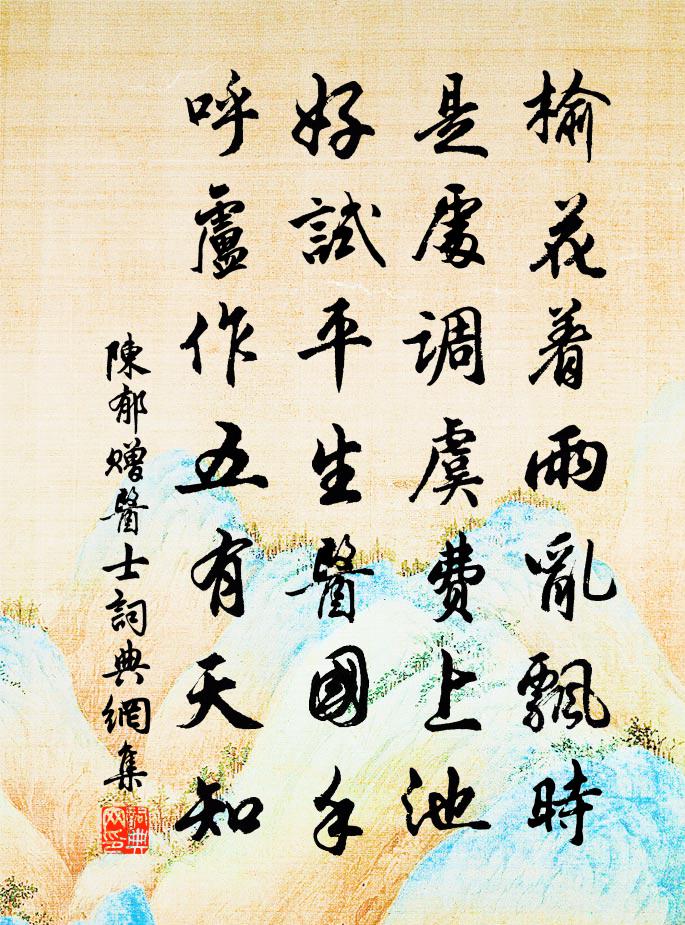 榆花着雨亂飄時
是處調虞費上池
好試平生醫國手
呼盧作五有天知
陳郁贈醫士詞典網集
詞典网印